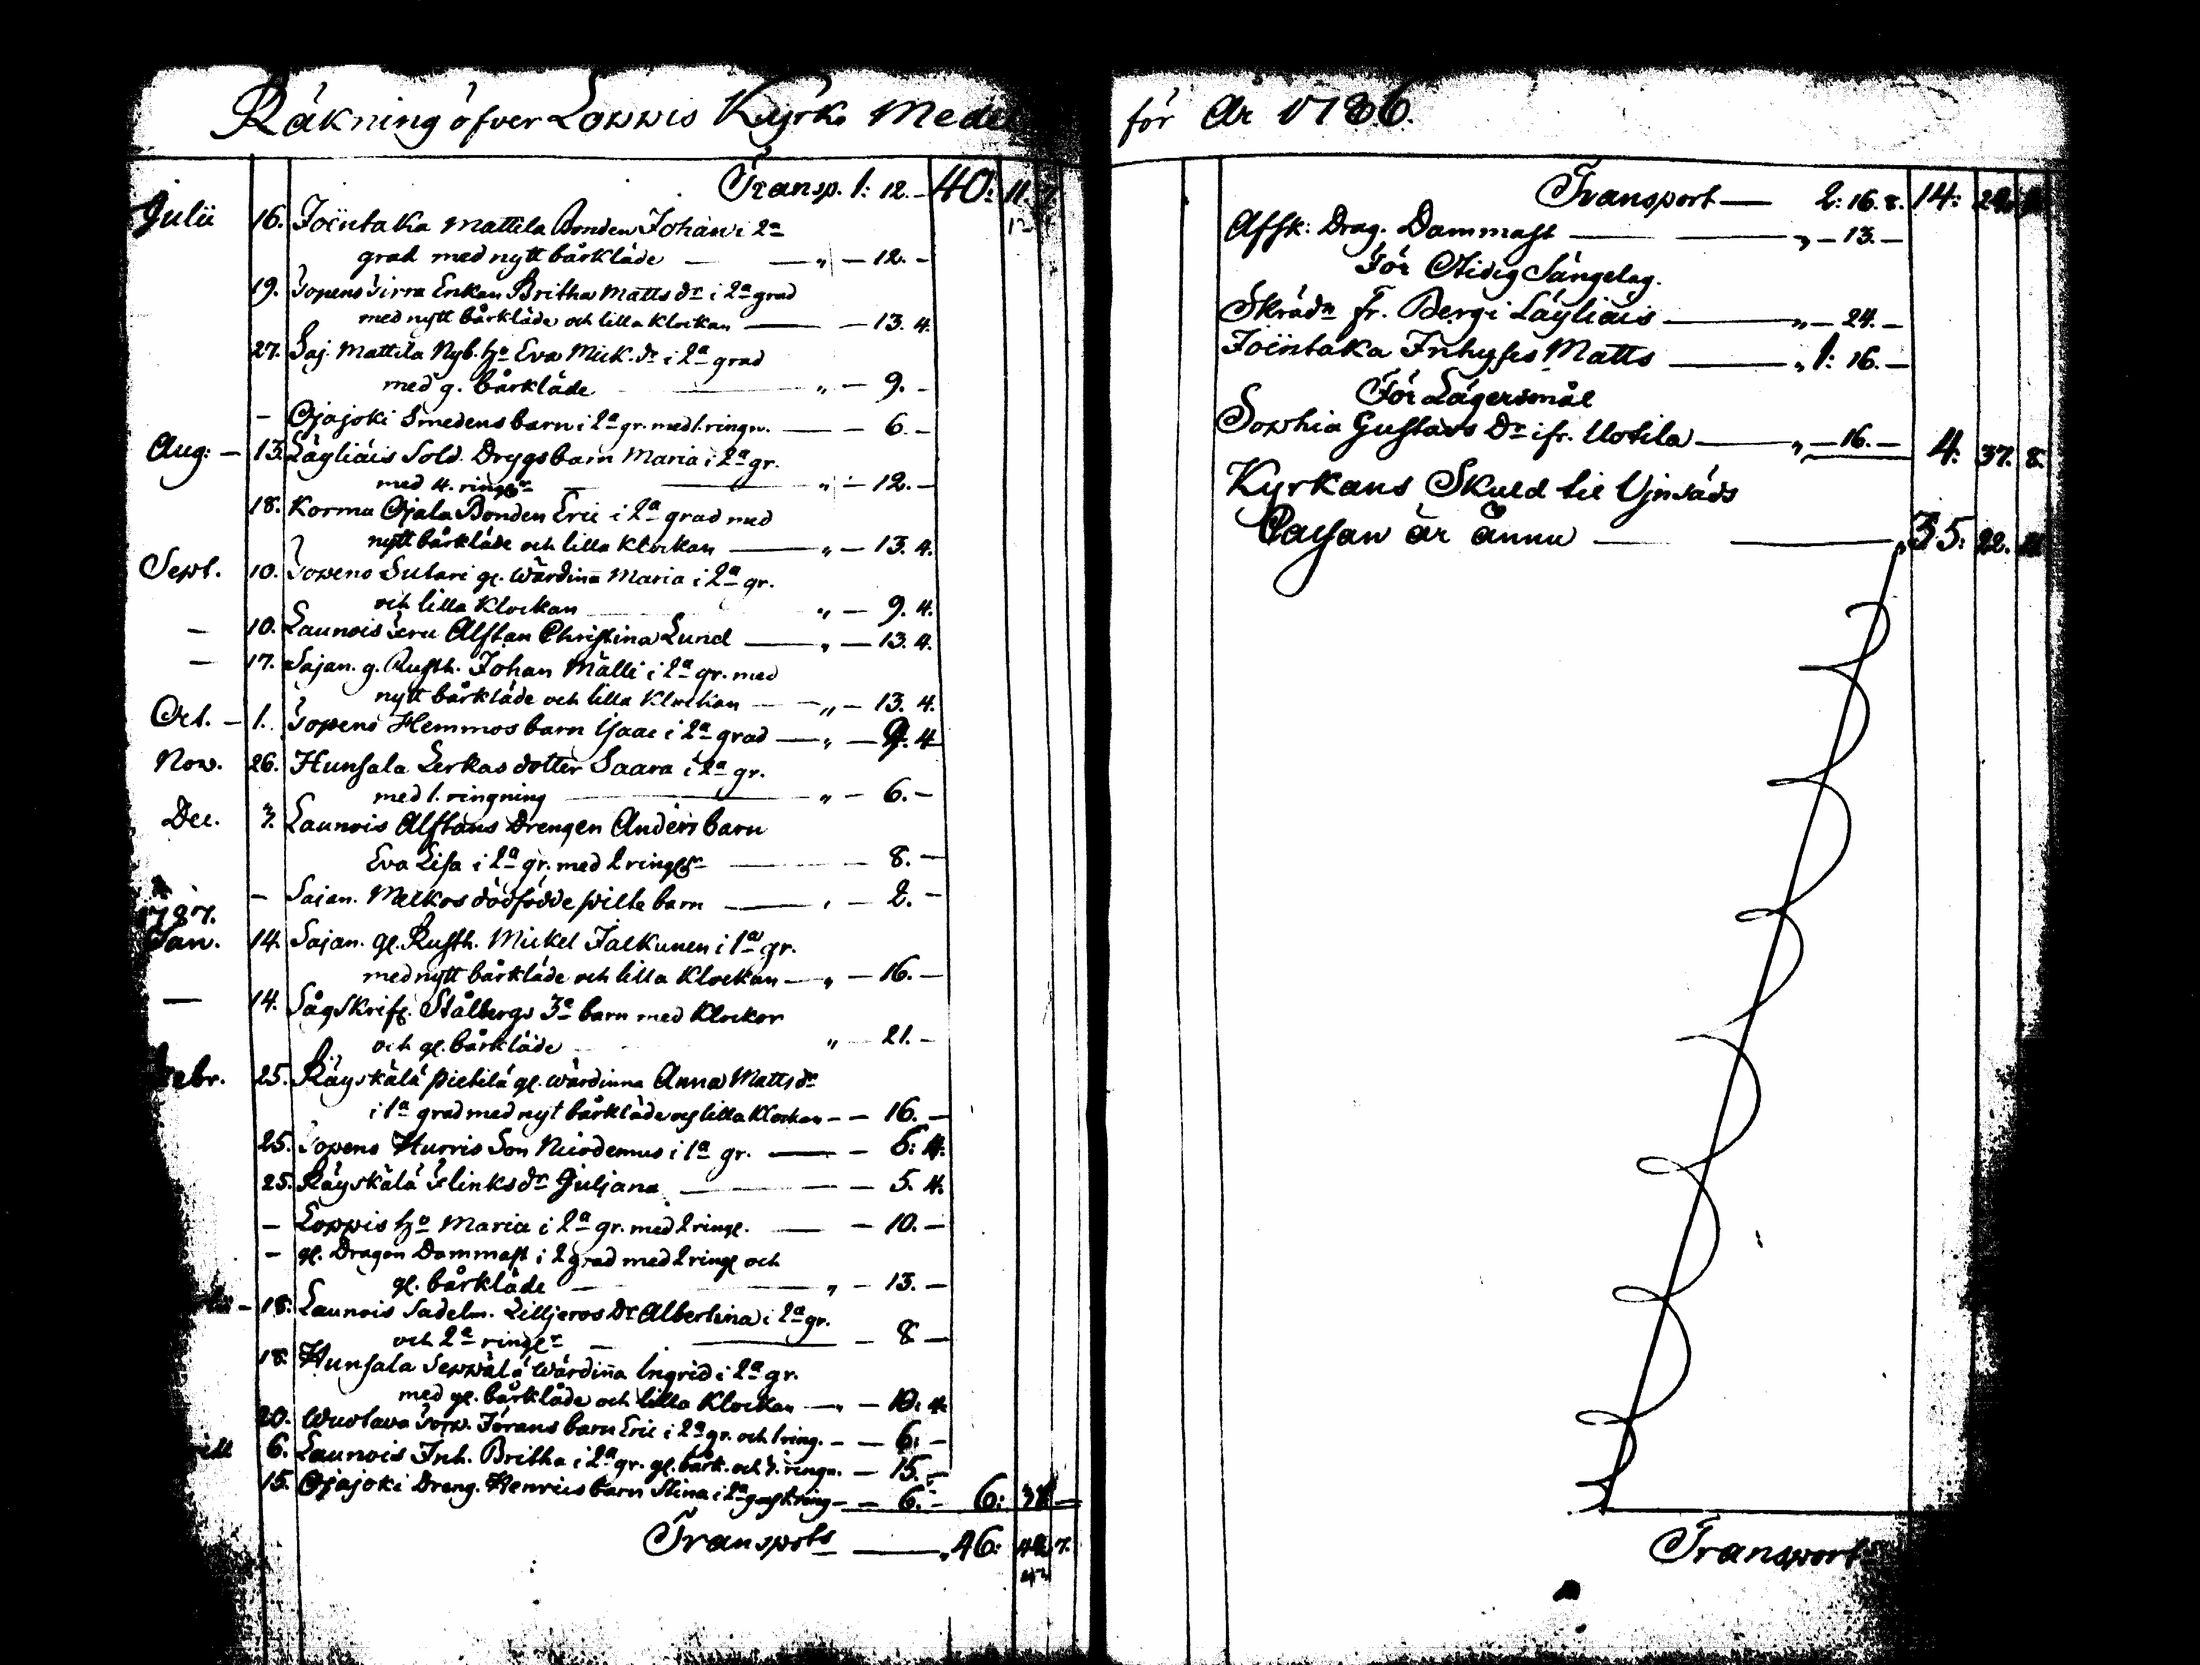 Räkning öfver Loppis Kyrko Medel
Transp. 1: 12. - 40: 11. 7.
Julii 16. Joentaka Mattila Bonden Johan i 2a
grad med nytt bårkläde — „ — 12. -
19. Topeno Sirra Enkan Britha Matts dr i 2a grad
med nytt bårkläde och lilla Klockan — — 13. 4.
27. Saj. Mattila Nyb. ho Eva Mick. dr i 2a grad
med g. bårkläde „ — 9. -
- Ojajoki Smedens barn i 2a gr. med 1. ringn. — — 6. -
Aug: - 13. Läyliäis Sold. Drygs barn Maria i 2a gr.
med 4. ringr — „ — 12. -
18. Kormu Ojala Bonden Eric i 2a grad med
nytt bårkläde och lilla Klockan — „ — 13. 4.
Sept. 10. Topeno Sutari gl. Wärdinna Maria i 2a gr.
och lilla Klockan „ — 9. 4.
- 10. Launois Alftan Christina Lund — „ — 13. 4.
- 17. Sajan. g. Rusth. Johan Mälli i 2a gr. med
nytt bårkläde och lilla Klockan — „ — 13. 4.
Oct. - 1. Topeno Hemmos barn Isaac i 2a grad — „ — 9. 4
Nov. 26. Hunsala Lerkas dotter Saara i 2a gr.
med 1. ringning „ — 6. -
Dec. 3. Launois Alftans Drengen Anders barn
Eva Lisa i 2a gr. med 2 ringr — — 8. -
- Sajan. Melkos dödfödde pilte barn — , — 2. -
1787.
Jan. 14. Sajan. gl. Rusth. Mickel Jalkunen i 1a gr.
med nytt bårkläde och lilla Klockan — „ — 16. -
— 14. Sågskrif. Stålbergs 3a barn med Klockor
och gl. bårkläde „ — 21. -
Febr. 25. Räyskälä Pietilä gl. Wärdinna Anna Matts dr
i 1a grad med nyt bårkläde och lilla Klockan — — 16. -
25. Topeno Hurris Son Nicodemus i 1a gr. — — 6: 4.
25. Räyskälä Flinks dr Juljana — — 5. 4.
- Loppis ho Maria i 2a gr. med 2 ringl. — — 10. -
- gl. Dragon Dammast i 2 grad med 2 ringl och
gl. bårkläde — „ — 13. -
- 18. Launois Sadelm. Lilljeros Dr Albertina i 2a gr.
och 2a ringr — — 8 -
18. Hunsala Seppälä Wärdinna Ingrid i 2a gr.
med gl. bårkläde och lilla Klockan — „ — 10. 4.
20. Wuotava Jörans barn Eric i 2a gr. och 1 ring. — — 6: -
6. Launois Inh. Britha i 2a gr. gl. bårk. och 3. ringn. — 15. -
15. Ojajoki Dreng. Henrics barn Stina i 2a gr. 1 ring — — 6. - 6: 38 -
Transport — „ 46: 49 7.
för År 1786.
Transport — 2: 16. 8. 14: 29.
Afsk: Drag. Dammast — — „ — 13. -
För Otidig Sängelag.
Skrädn fr. Bergi Läyliäis — „ — 24. -
Joentaka Inhyses Matts — „ 1: 16. -
För Lägersmål
Sophia Gustavs Dr ifr. Uotila — „ — 16. - 4. 37. 8.
Kyrkans Skuld til
är ännu — — „ 35: 22.
Transport